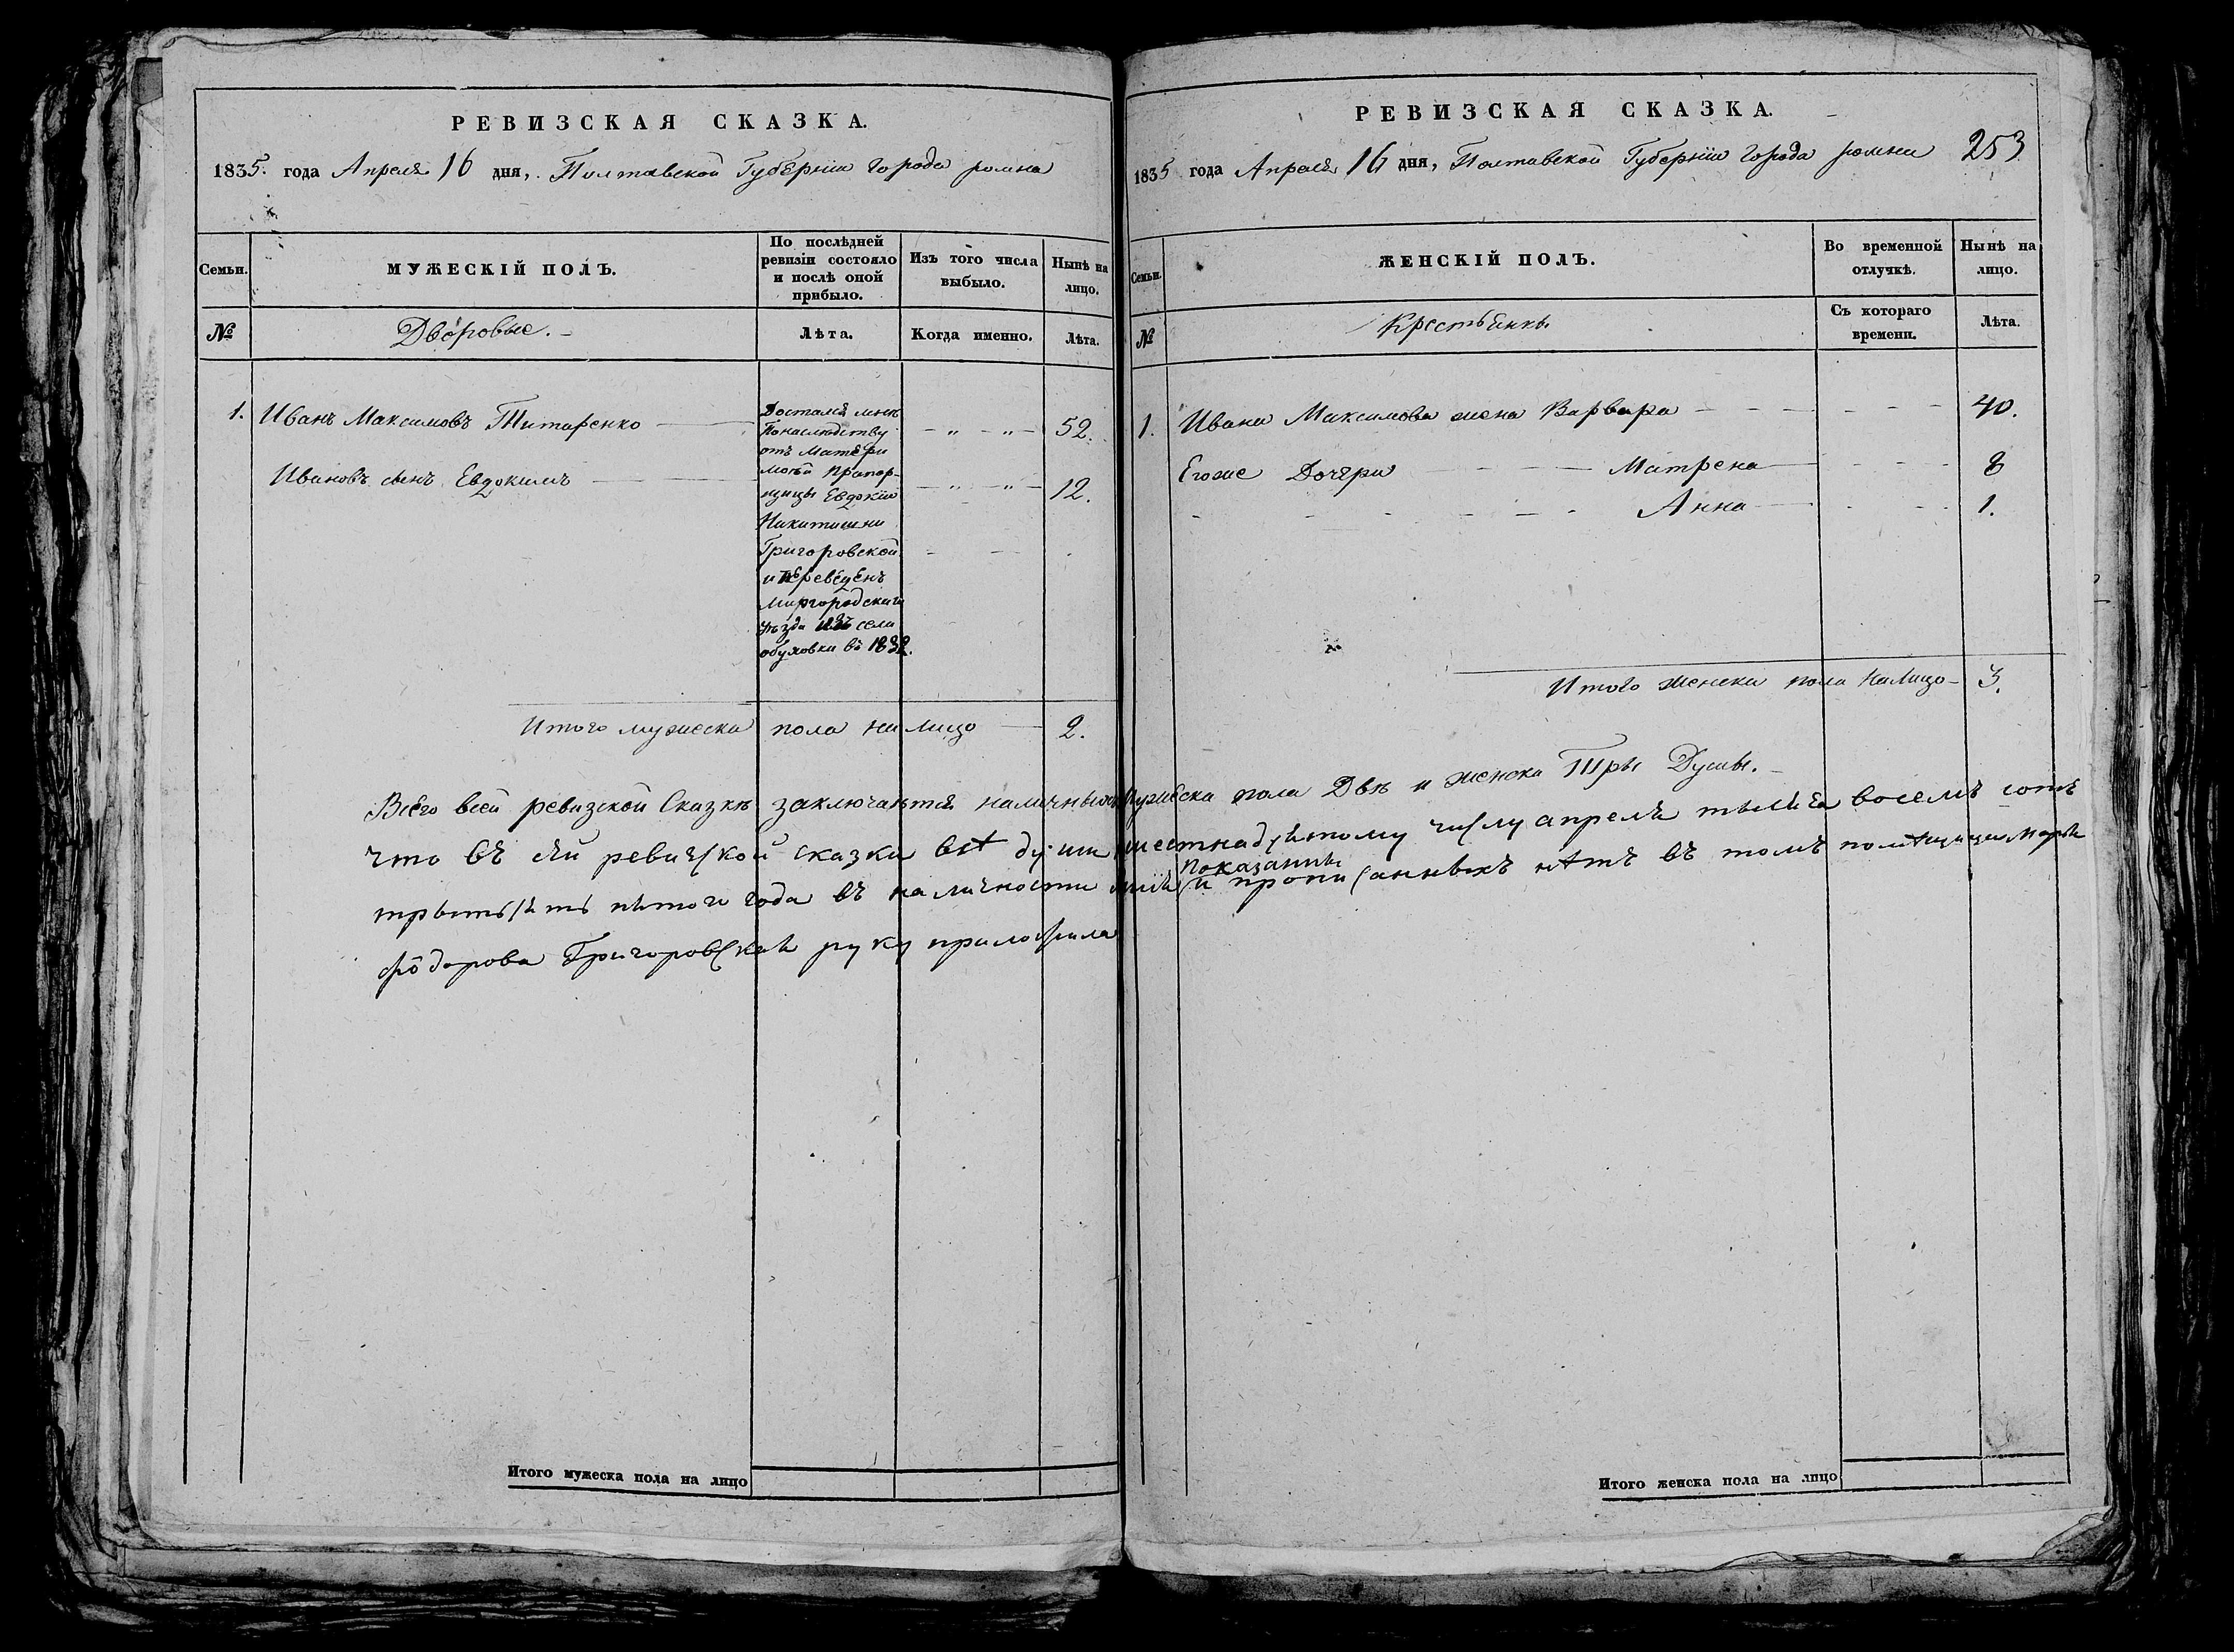 РЕВИЗСКАЯ СКАЗКА.
1835. года Апреля 16 дня, Полтавской Губернiи города ромна
Семьи.
МУЖЕСКІЙ ПОЛЪ.
По послѣдней
ревизіи состояло
и послѣ оной
прибыло.
Изъ того числа
выбыло.
Нынѣ на
лицо.
№
Дворовые.
Лѣта.
Когда именно.
Лѣта.
1. Иванъ Максимовъ Титаренко — " — " — 52.
Ивановъ сынъ Евдокимъ — " — " — 12.
Достался мнѣ
По наслѣдству
отъ Матери
моей Прапор-
щицы Евдокіи
Никитишни
Григоровской
и переведенъ
Миргородскаго
уѣзда изъ села
обуховки въ 1832.
Итого мужеска пола на лицо — 2.
РЕВИЗСКАЯ СКАЗКА.
1835 года Апреля 16 дня, Полтавской Губернiи города ромна 253
Семьи.
ЖЕНСКІЙ ПОЛЪ.
Во временной
отлучкѣ.
Нынѣ на
лицо.
№
Крестьянки.
Съ котораго
времени.
Лѣта.
1. Ивана Максимова жена Варвара — 40.
Егоже Дочери — Матрена — 8
Анна — 1.
Итого женска пола на лицо — 3.
Всего всей ревизской Сказкѣ заключается наличныхъ Мужеска пола Двѣ и женска Три Души.
что въ сей ревизской сказки всѣ души шестнадцятому числу апреля тысяча восемъ сотъ
трыцять пятого года въ наличности показанны и прописанныхъ нѣтъ въ томъ помѣщица Марѣя
фіодорова Григоровская руку приложила
Итого мужеска пола на лицо
Итого женска пола на лицо